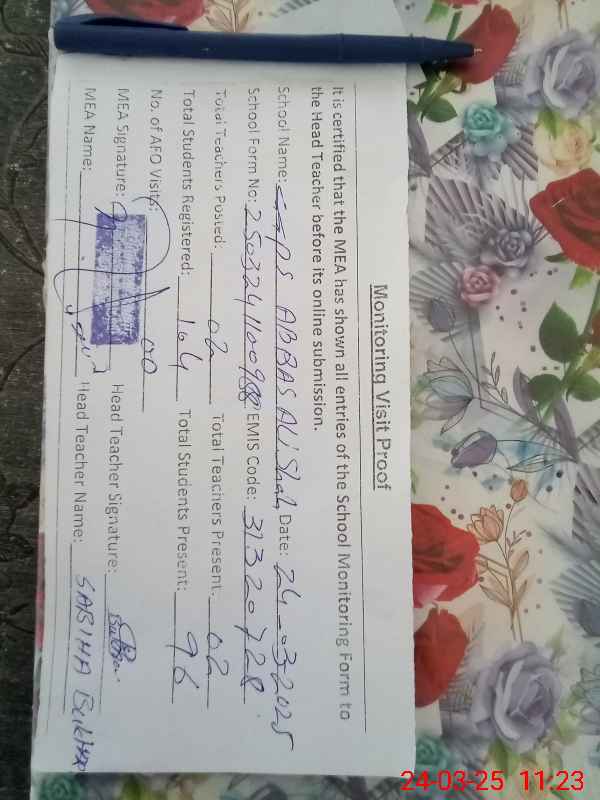 Monitoring Visit Proof
It is certified that the MEA has shown all entries of the School Monitoring Form to
the Head Teacher before its online submission.
School Name: GGPS ABBAS Ali Shah Date: 24-03-2025
School Form No: EMIS Code: 31320728
Total Teachers Posted: 02 Total Teachers Present: 02
Total Students Registered: 104 Total Students Present: 96
No. of AEO Visits: 00
MEA Signature: Head Teacher Signature:
MEA Name: Head Teacher Name: SABIHA
24-03-25 11:23